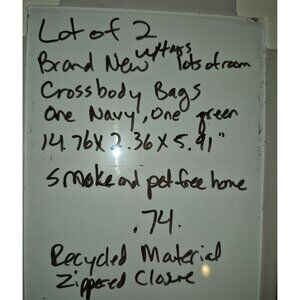 Lot of 2
Brand New w/tags lots of room
Crossbody Bags
One Navy, One green
14.76 X 2.36 X 5.91"
smoke and pet free home
.74.
Recycled Material
Zippered Closure